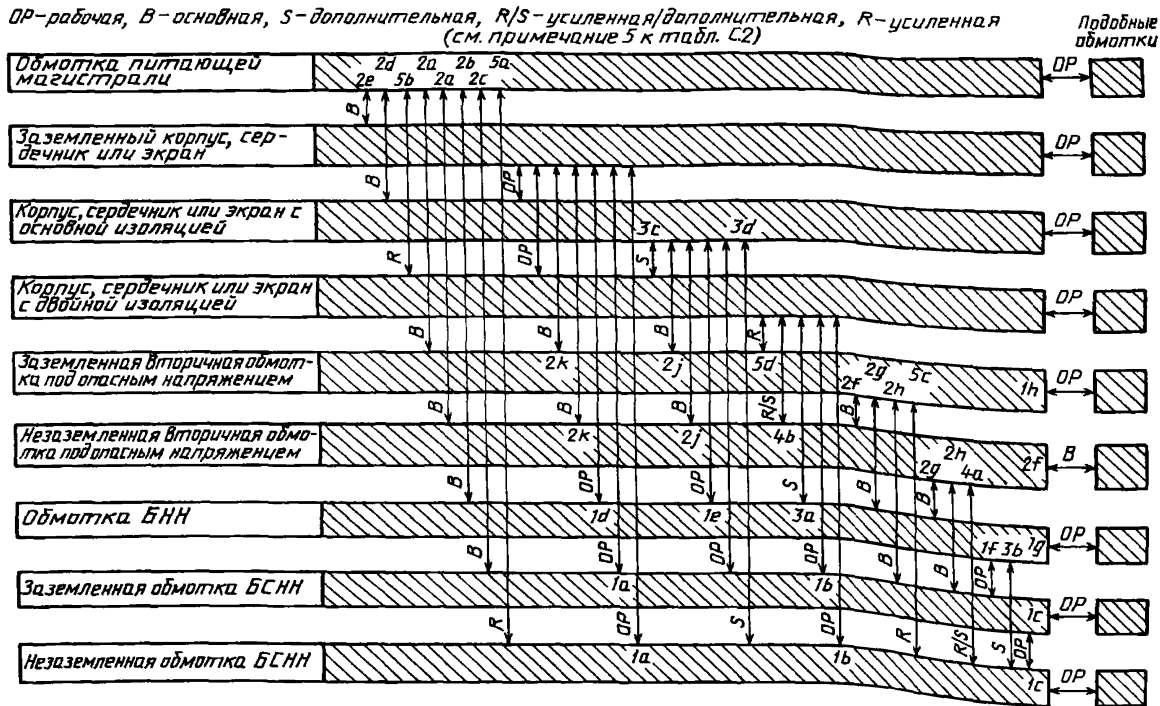 OP-рабочая, B-основная, S-дополнительная, R/S-усиленная/дополнительная, R-усиленная
(см. примечание 5 к табл. С.2)
Подобные
обмотки
Обмотка питающей
магистрали
2d 2a 2b 5a
2e 5b 2a 2c
OP
B
Заземленный корпус, сер-
дечник или экран
OP
B
OP
Корпус, сердечник или экран с
основной изоляцией
3c 3d
OP
R
OP
S
Корпус, сердечник или экран
с двойной изоляцией
OP
B
B
B
R
Заземленная вторичная обмот-
ка под опасным напряжением
2k 2j 5d 2f 2g 2h 5c 1h
OP
B
B
B
R/S
B
Незаземленная вторичная обмо-
тка под опасным напряжением
2k 2j 4b 2g 2h 4a 2f
B
B
OP
OP
S
B
B
Обмотка БНН
1d 1e 3a 1f 3b 1g
OP
B
OP
OP
OP
B
B
OP
Заземленная обмотка БСНН
1a 1b 1c
OP
R
OP
S
OP
R
R/S
S
OP
Незаземленная обмотка БСНН
1a 1b 1c
OP